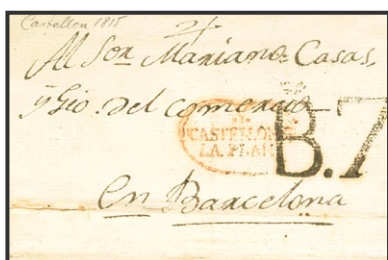 Castellon 1815
Al Sor. Mariano Casas,
y Gio. del comercio
CASTELLON
LA PLAN
B.7
en Barcelona